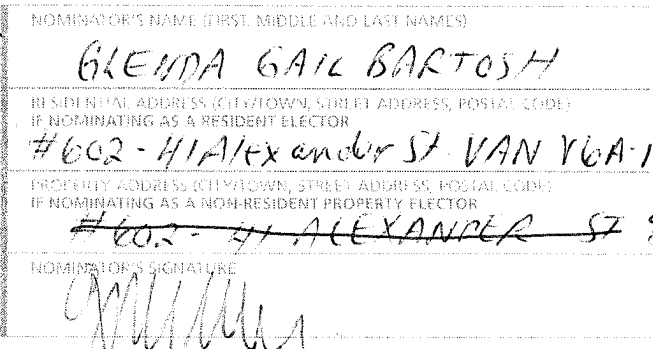 NOMINATOR'S NAME (FIRST, MIDDLE AND LAST NAMES)
GLENDA GAIL BARTOSH
RESIDENTIAL ADDRESS (CITY/TOWN, STREET ADDRESS, POSTAL CODE)
IF NOMINATING AS A RESIDENT ELECTOR
#602-41 Alexander St VAN V6A-1
PROPERTY ADDRESS (CITY/TOWN, STREET ADDRESS, POSTAL CODE)
IF NOMINATING AS A NON-RESIDENT PROPERTY ELECTOR
#602-41 ALEXANDER ST
NOMINATOR'S SIGNATURE